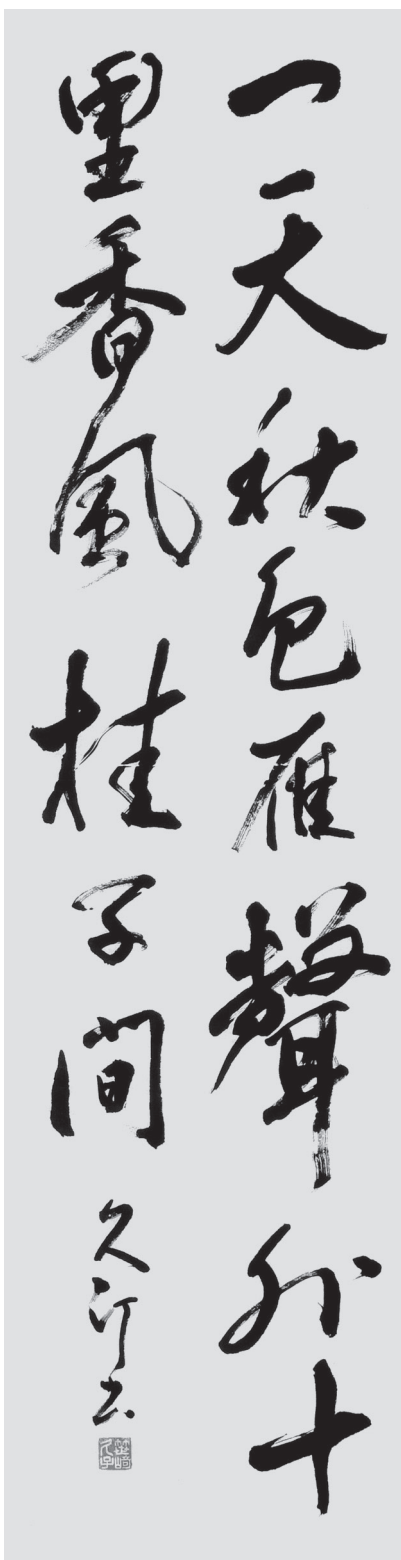 一天秋色雁聲外十
里香風桂子間
久汀書